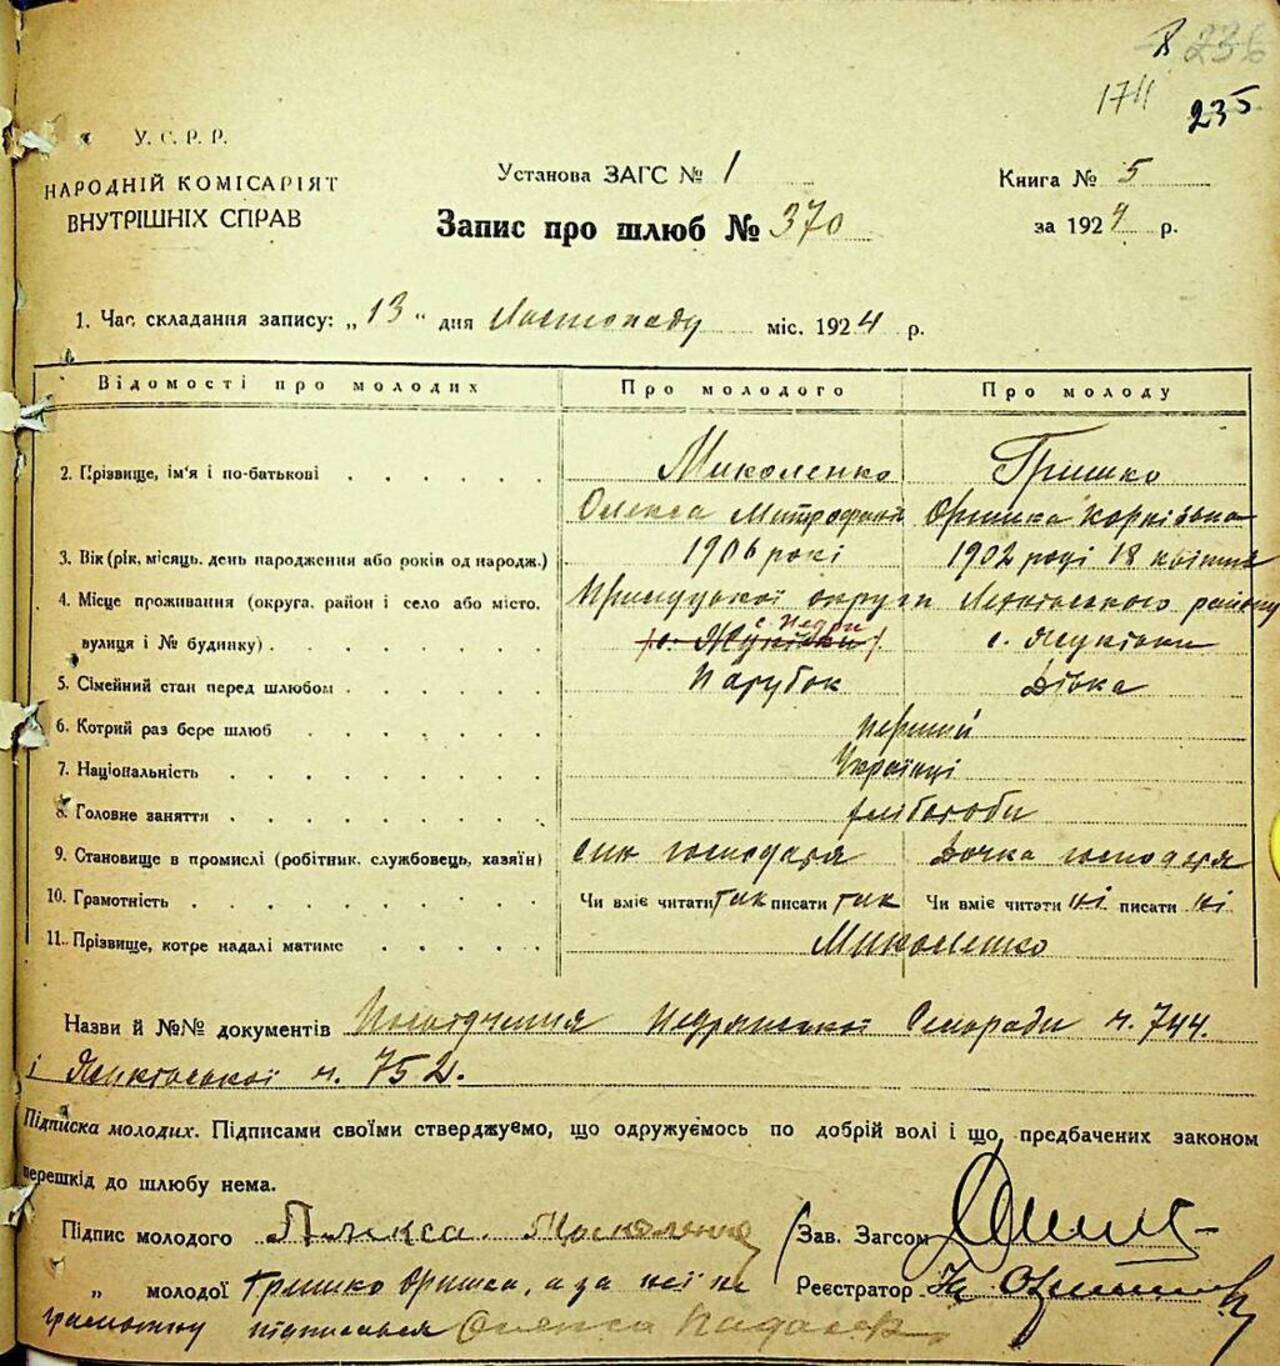 8 236
1711
235
У. С. Р. Р.
НАРОДНІЙ КОМІСАРІЯТ
ВНУТРІШНІХ СПРАВ
Установа ЗАГС № 1
Книга № 5
Запис про шлюб № 370
за 1924 р.
1. Час складання запису: „13“ дня Листопаду міс. 1924 р.
Відомості про молодих Про молодого Про молоду
2. Прізвище, ім'я і по-батькові Миколенко Гришко
Олекса Митрофан Оришка Корніївна
3. Вік (рік, місяць, день народження або років од народж.) 1906 році 1902 році 18 квітня
4. Місце проживання (округа, район і село або місто, Прилуцької округи району
вулиця і № будинку) с. Недри с. Яцківки
5. Сімейний стан перед шлюбом Парубок Дівка
6. Котрий раз бере шлюб перший
7. Національність Українці
8. Головне заняття хлібороби
9. Становище в промислі (робітник, службовець, хазяїн) син господаря Дочка господаря
10. Грамотність Чи вміє читати так писати так Чи вміє читати ні писати ні
11. Прізвище, котре надалі матиме Миколенко
Назви й №№ документів Посвідчення Недрянської Сельради ч. 744.
і ч. 752.
Підписка молодих. Підписами своїми стверджуємо, що одружуємось по добрій волі і що, предбачених законом
перешкід до шлюбу нема.
Підпис молодого Зав. Загсом
„ молодої Гришко Оришка, а за неї не Реєстратор
грамотну підписався Олекса